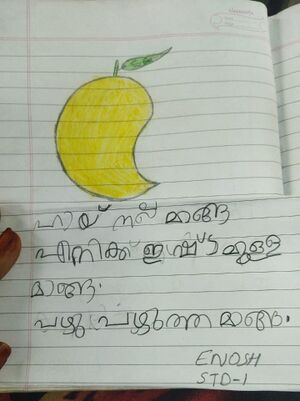 ഹായ് നല്ല മാങ്ങ
എനിക്ക് ഇഷ്ടമുള്ള
മാങ്ങ.
പഴുപഴുത്ത മാങ്ങ.
ENOSH
STD-1